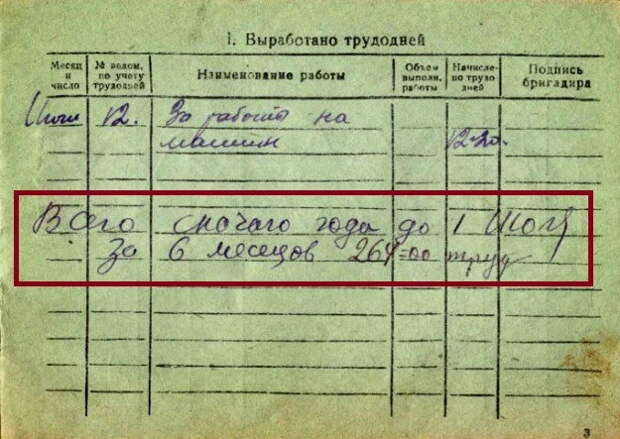 1. Выработано трудодней
Месяц и число
№ ведом. по учету трудодней
Наименование работы
Объем выполн. работы
Начислено трудодней
Подпись бригадира
Июнь 12. За работы на
машин 12-20.
Всего сначаго года до 1 Июля
за 6 месецов 264=00 труд
3